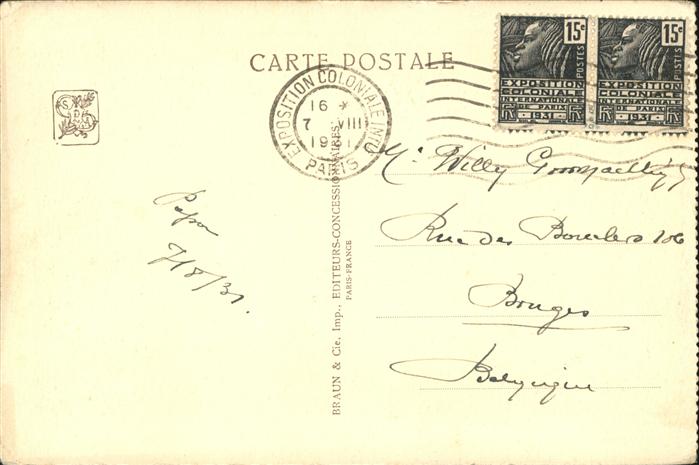 CARTE POSTALE
EXPOSITION COLONIALE INTLE
16 *
7 VIII
19 31
PARIS
15c 15c
POSTES POSTES
EXPOSITION EXPOSITION
COLONIALE COLONIALE
INTERNATIONALE INTERNATIONALE
DE PARIS DE PARIS
1931 1931
Mr Willy
Rue des 106
Bruges
Belgique
Papa
7/8/31.
BRAUN & Cie, Imp., EDITEURS-CONCESSIONNAIRES
PARIS-FRANCE